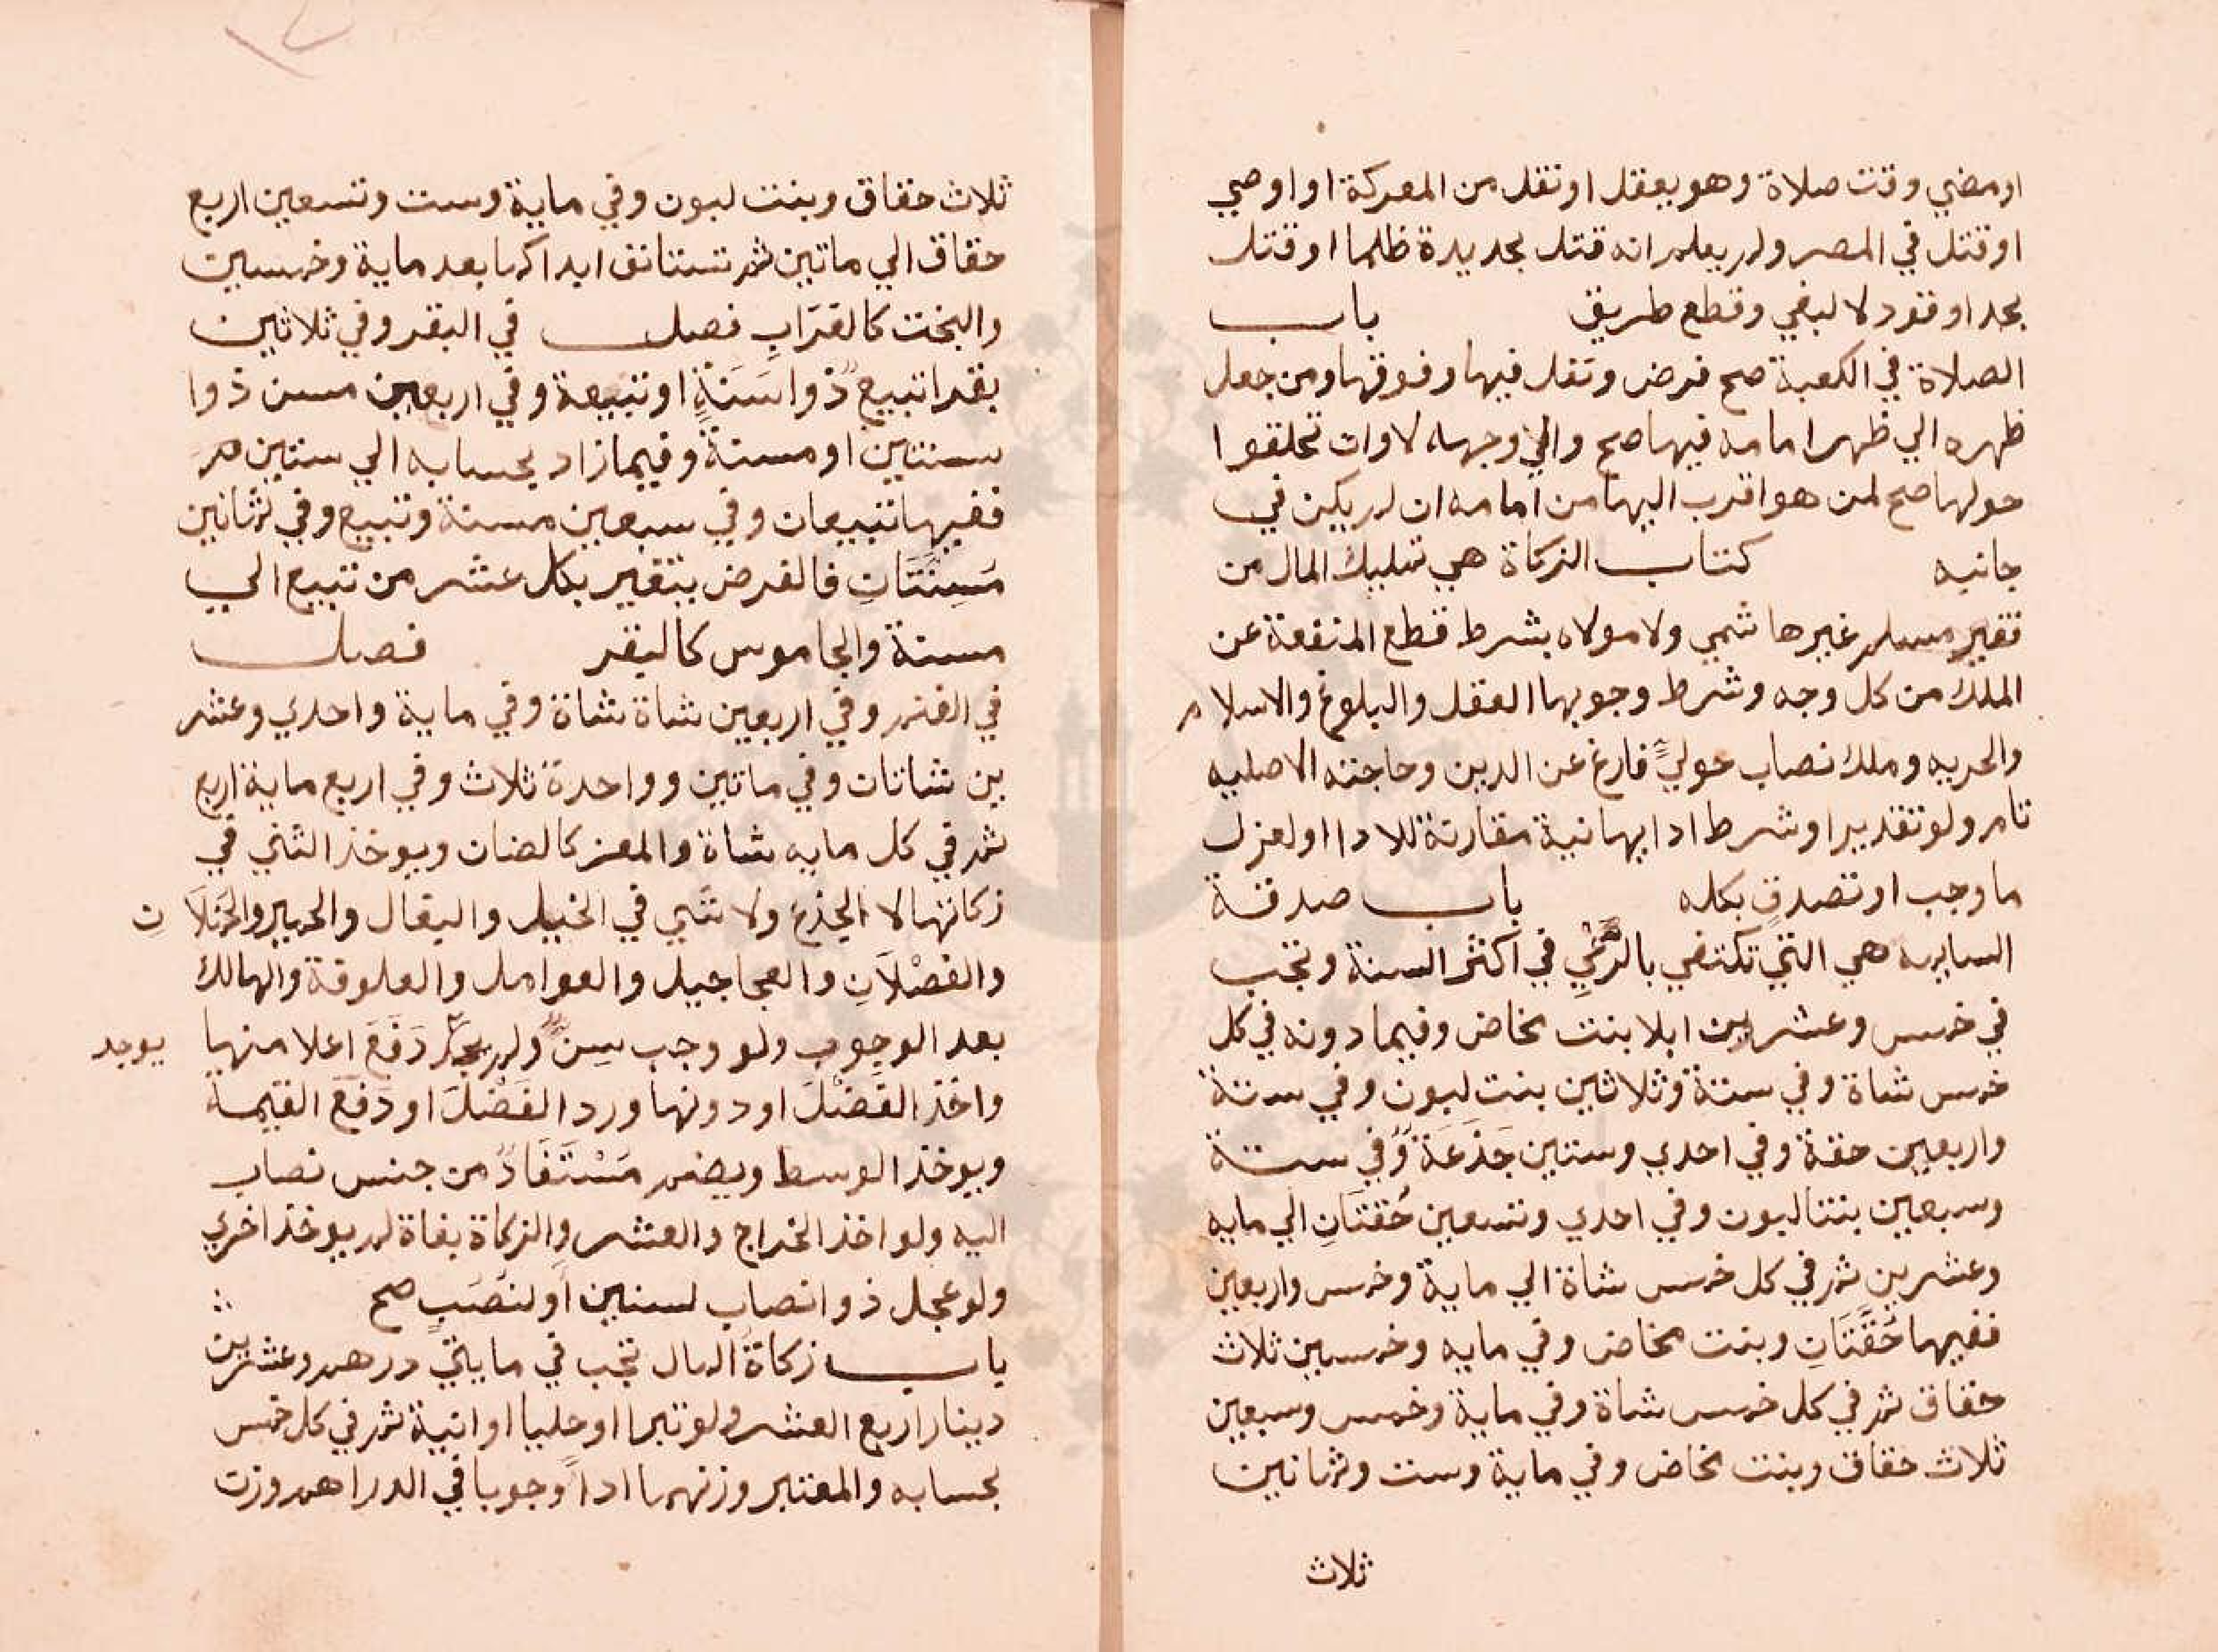 او مضي وقت صلاة وهو يعقل او نقل من المعركة او اوصي
او قتل في المصر ولم يعلم انه قتل بحديدة ظلما او قتل
بحد او قود لا لبغي وقطع طريق باب
الصلاة في الكعبة صح فرض ونفل فيها وفوقها ومن جعل
ظهره الي ظهر امامه فيها صح والي وجهه لا وان تحلقوا
حولها صح لمن هو اقرب اليها من امامه ان لم يكن في
جانبه كتاب الزكاة هي تمليك المال من
فقير مسلم غير هاشمي ولا مولاه بشرط قطع المنفعة عن
الملك من كل وجه وشرط وجوبها العقل والبلوغ والاسلام
والحريه وملك نصاب حولي فارغ عن الدين وحاجته الاصليه
نام ولو تقديرا وشرط ادايها نية مقارنة للادا او لعزل
ما وجب او تصدق بكله باب صدقة
السايمه هي التي تكتفي بالرعي في اكثر السنة وتجب
في خمس وعشرين ابلا بنت مخاض وفيما دونه في كل
خمس شاة وفي ستة وثلاثين بنت لبون وفي ستة
واربعين حقة وفي احدي وستين جَذَعَة وفي ستة
وسبعين بنتا لبون وفي احدي وتسعين حُقتَانِ الي مايه
وعشرين ثم في كل خمس شاة الي ماية وخمس واربعين
ففيها حُقَّتَانِ وبنت مخاض وفي مايه وخمسين ثلاث
حقاق ثم في كل خمس شاة وفي ماية وخمس وسبعين
ثلاث حقاق وبنت مخاض وفي ماية وست وثمانين
ثلاث
ثلاث حقاق وبنت لبون وفي ماية وست وتسعين اربع
حقاق الي ماتين ثم تستانف ابدا كما بعد ماية وخمسين
والبخت كالعَرَابِ فصل في البقر وفي ثلاثين
بقرا تبيع ذوا سَنَةٍ او تبيعة وفي اربعين مسن ذوا
سنتين او مسنة وفيما زاد بحسابه الي ستين
ففيها تبيعان وفي سبعين مسنة وتبيع وفي ثمانين
مَسِنَّتَانِ فالفرض يتغير بكل عشر من تبيع الي
مسنة والجاموس كالبقر فصل
في الغنم وفي اربعين شاة شاة وفي ماية واحدي وعشر
ين شاتان وفي ماتين وواحدة ثلاث وفي اربع ماية اربع
ثم في كل مايه شاة والمعز كالضان ويوخذ الثني في
زكاتها لا الجذع ولا شي في الخيل والبغال والحمير والحملَا ن
والفصْلَانِ والعجاجيل والعوامل والعلوفة والهالك
بعد الوجوب ولو وجب سِنّ ولم يجد دَفَعَ اعلا منها يوجد
واخذ الفَضْلَ او دونها ورد الفَضْلَ او دَفَعَ القيمة
ويوخذ الوسط ويضم مَسْتَفَادٌ من جنس نصاب
اليه ولو اخذ الخراج والعشر والزكاة بغاة لم يوخذ اخري
ولو عجل ذوا نصاب لسنين او لنُصُبٍ صح
باب زكاة المال تجب في مايتي درهم وعشرين
دينارا ربع العشر ولو تبرا او حليا او انية ثم في كل خمس
بحسابه والمعتبر وزنهما اداً وجوبا في الدراهم وزن